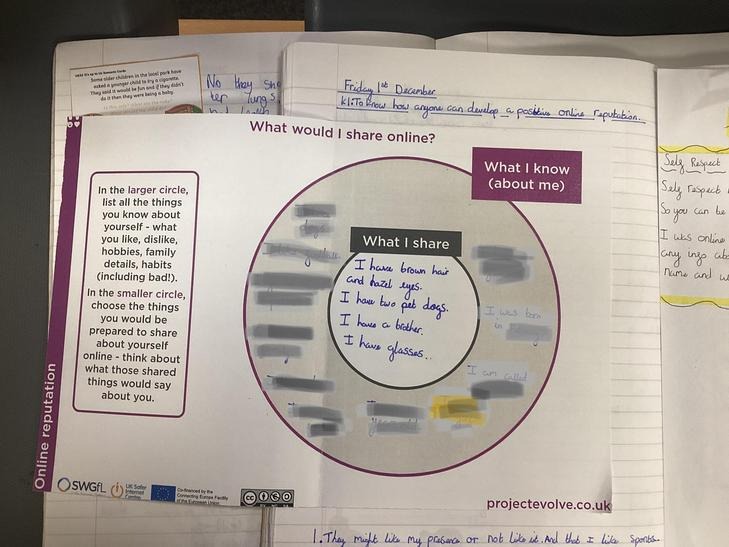 Some older children in the local park have
asked a younger child to try a cigarette.
They said it would be fun and if they didn't
do it then they were being a baby.
No they
Friday 1st December
to know how anyone can develop a positive online reputation.
What would I share online?
What I know
(about me)
In the larger circle,
list all the things
you know about
yourself - what
you like, dislike,
hobbies, family
details, habits
(including bad!).
In the smaller circle,
choose the things
you would be
prepared to share
about yourself
online - think about
what those shared
things would say
about you.
Online reputation
What I share
I have brown hair
and hazel eyes.
I have two pet dogs.
I have a brother.
I have glasses...
dogs
I was born
in
I am called
Self Respect
Self respect
So you can be
I was online
any
name and
SWGfL
UK Safer
Internet
Centre
Co-financed by the
Connecting Europe Facility
of the European Union
cc
projectevolve.co.uk
1. They might like my presence or not like it. And that I like sports